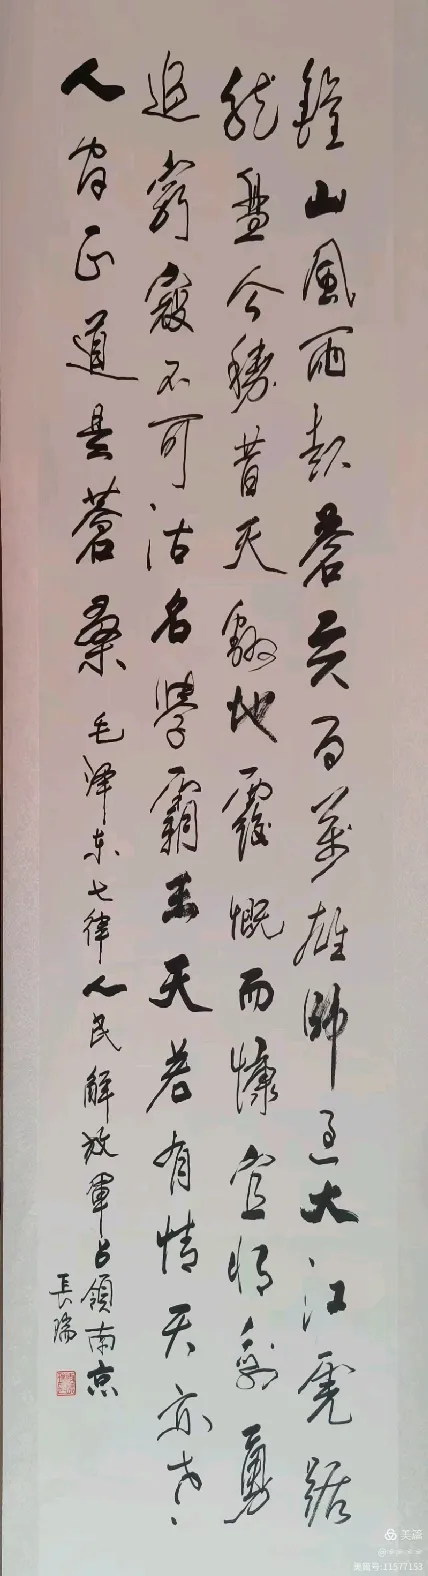 鐘山風雨起蒼黄百萬雄師过大江虎踞
龍盤今勝昔天翻地覆慨而慷宜将剩勇
追窮寇不可沽名學霸王天若有情天亦老
人間正道是蒼桑 毛泽东七律人民解放軍占領南京
長瑞
美篇
美篇号:11577153